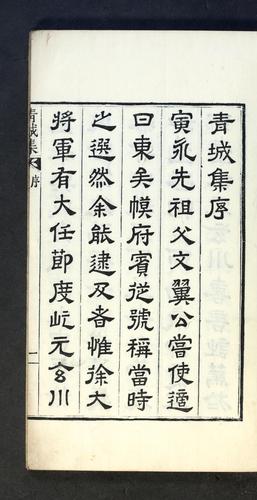 青城集序
寅永先祖父文翼公嘗使適
曰東矣幙府賓从號稱當時
之選然余能逮及者惟徐大
將軍有大任節度屹元玄川
青城集
序
一